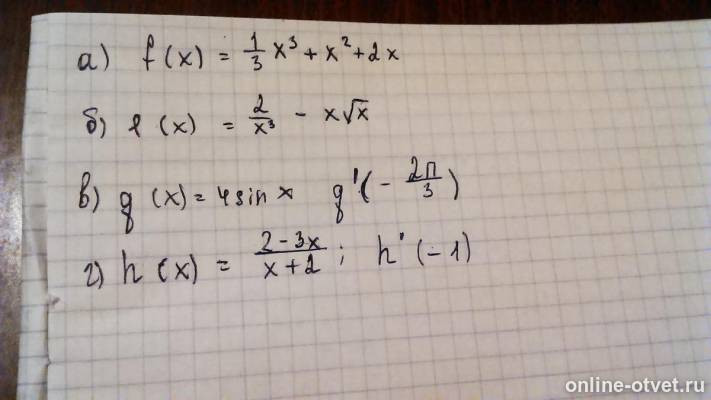 а) f(x) = 1/3 x³ + x² + 2x
б) f(x) = 2/x³ - x√x
в) g(x) = 4 sin x g'(- 2π/3)
г) h(x) = (2 - 3x)/(x + 2) ; h'(-1)
online-otvet.ru